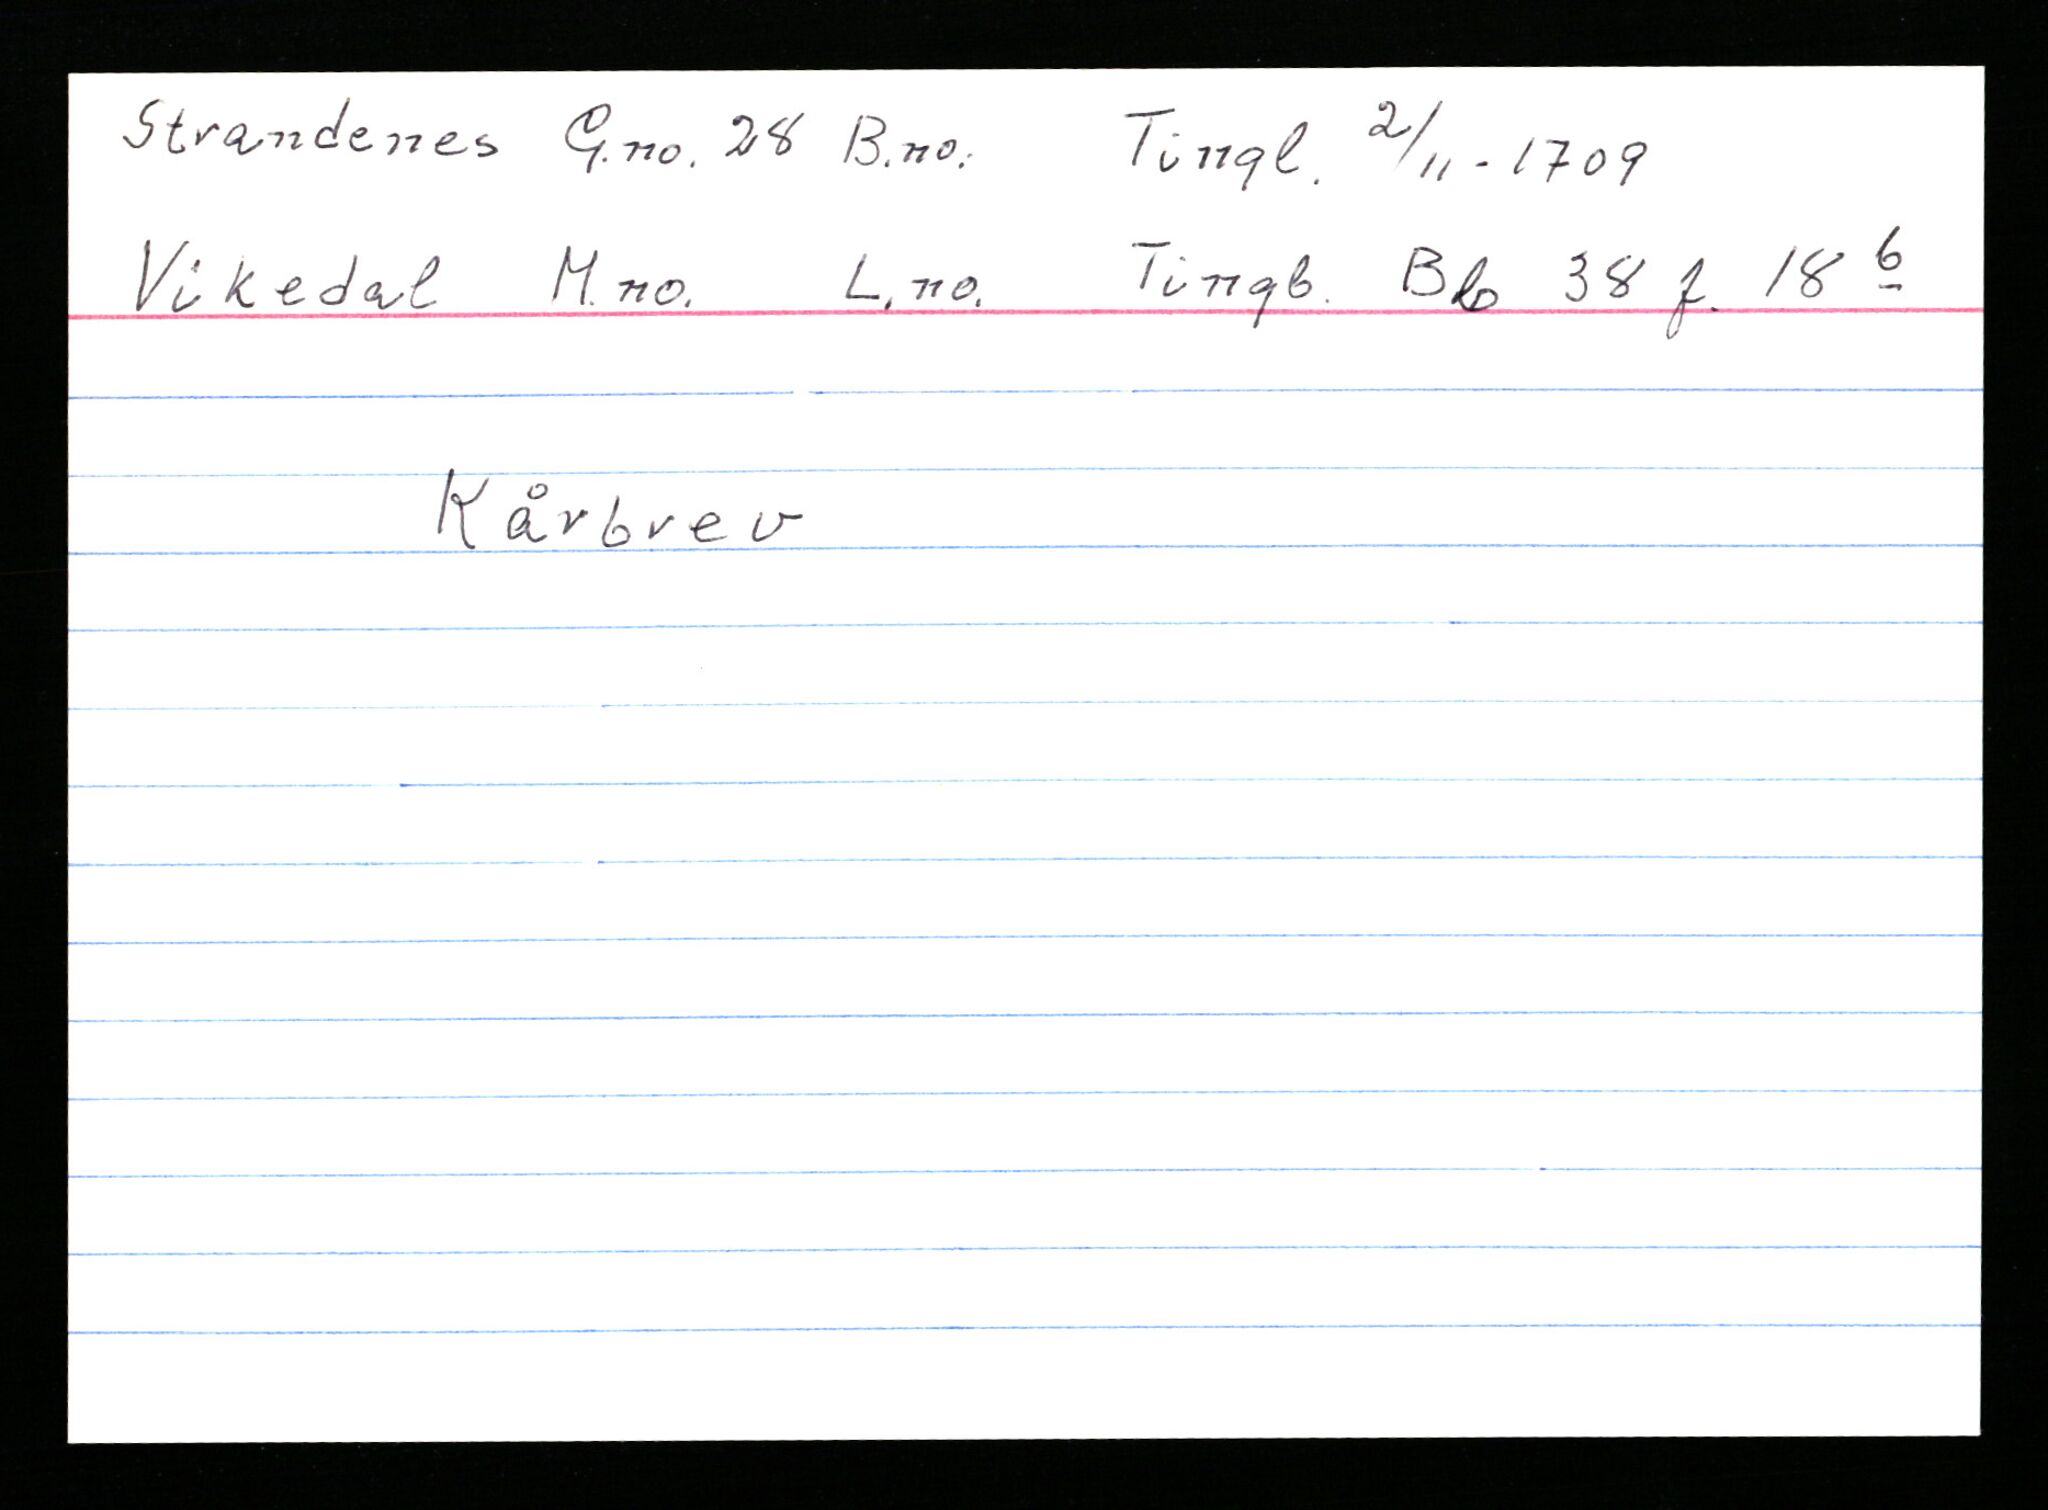 Strandenes G.no. 28 B.no. Tingl. 2/11 - 1709
Vikedal M.no. L.no. Tingb. B b 38 f. 18 b
Kårbrev